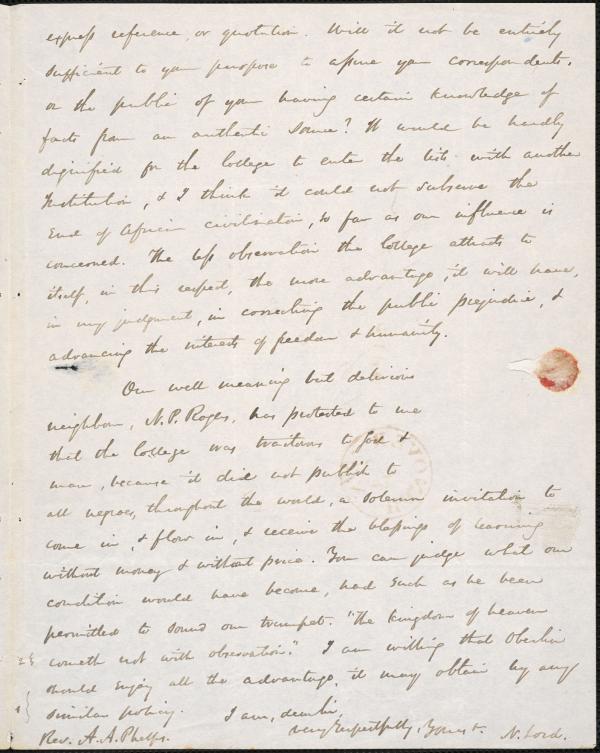 express reference, or quotation. Will it not be entirely
sufficient to your purpose to assure your correspondents,
or the public of your having certain knowledge of
facts from an authentic source? It would be hardly
dignified for the College to enter the lists with another
Institution, & I think it could not subserve the
End of African civilization, so far as our influence is
concerned. The less observation the College attracts to
itself, in this respect, the more advantage, it will have,
in my judgment, in correcting the public prejudice, &
advancing the interests of freedom & humanity.
Our well meaning but delirious
neighbour, N. P. Rogers, has protested to me
that the College was traitorous to God &
man, because it did not publish to
all negroes, throughout the world, a solemn invitation to
come in, & flow in, & receive the blessings of learning
without money & without price. You can judge what our
condition would have become, had such as he been
permitted to sound our trumpet. "The kingdom of heaven
cometh not with observation." I am willing that Oberlin
should enjoy all the advantage, it may obtain by any
similar policy.
I am, dear Sir,
very respectfully, Yours &.
N. Lord.
Rev. A. A. Phelps.